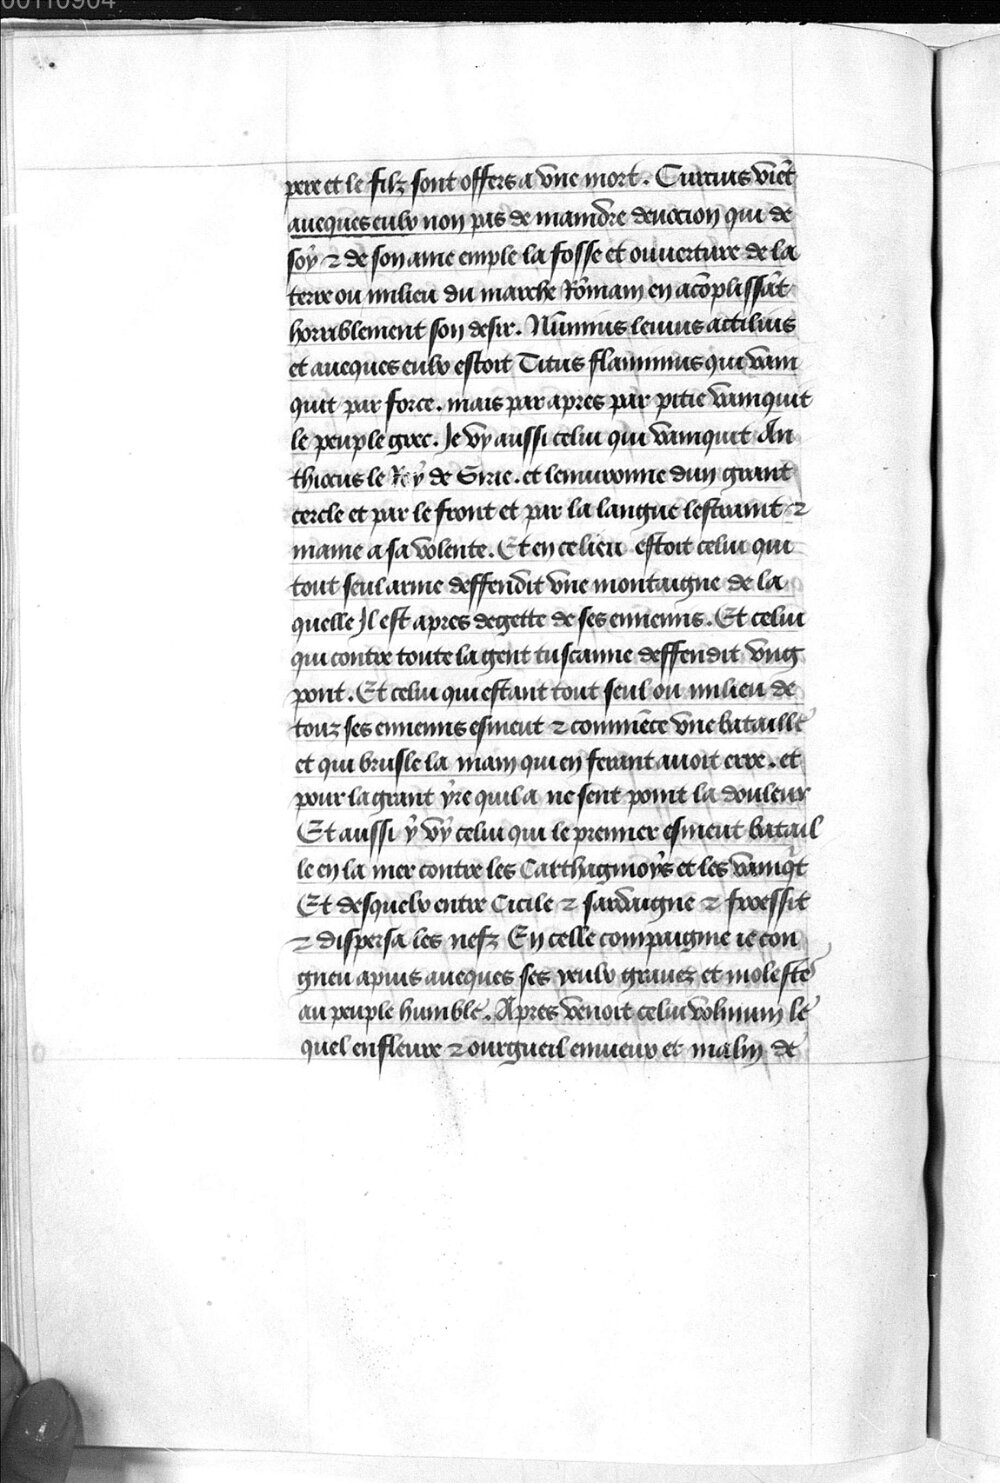 00110904
pere et le filz sont offers a vne mort. Curcius viēt
auecques eulx non pas de maindre deuocion qui de
soy ⁊ de son ame emple la fosse et ouuerture de la
terre ou milieu du marche Rōmain en acōplissāt
horriblement son desir. Nūmius leuius actilius
et auecques eulx estoit Titus flaminius qui vain
quit par force. mais par apres par pitie vainquit
le peuple grec. Je vy aussi celui qui vainquit An
thiocus le Roy de Sirie. et lenuironne dun grant
cercle et par le front et par la langue lestraint ⁊
maine a sa volente. Et en ce lieu estoit celui qui
tout seul arme deffendit vne montaigne de la
quelle Il est apres degette de ses ennemis. Et celui
qui contre toute la gent tuscanne deffendit vng
pont. Et celui qui estant tout seul ou milieu de
touz ses ennemis esmeut ⁊ commēce vne bataille
et qui brusle la main qui en ferant auoit erre. et
pour la grant yre quil a ne sent point la douleur
Et aussi y vy celui qui le premier esmeut batail
le en la mer contre les Carthaginoys et les vainqt
Et desquelx entre Cicile ⁊ sardaigne ⁊ froessit
⁊ dispersa les nefz En celle compaignie ie con
gneu apius auecques ses yeulx grauez et moleste
au peuple humble. Apres venoit celui volumin le
quel enfleure ⁊ ourgueil enuieux et malin de